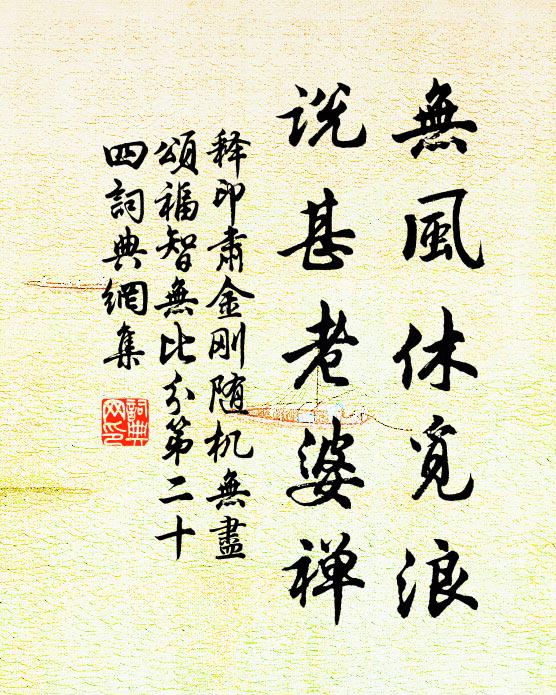 無風休覓浪
説甚老婆禅
释印肃金刚随机無盡
頌福智無比分第二十
四詞典網集
詞典
网印